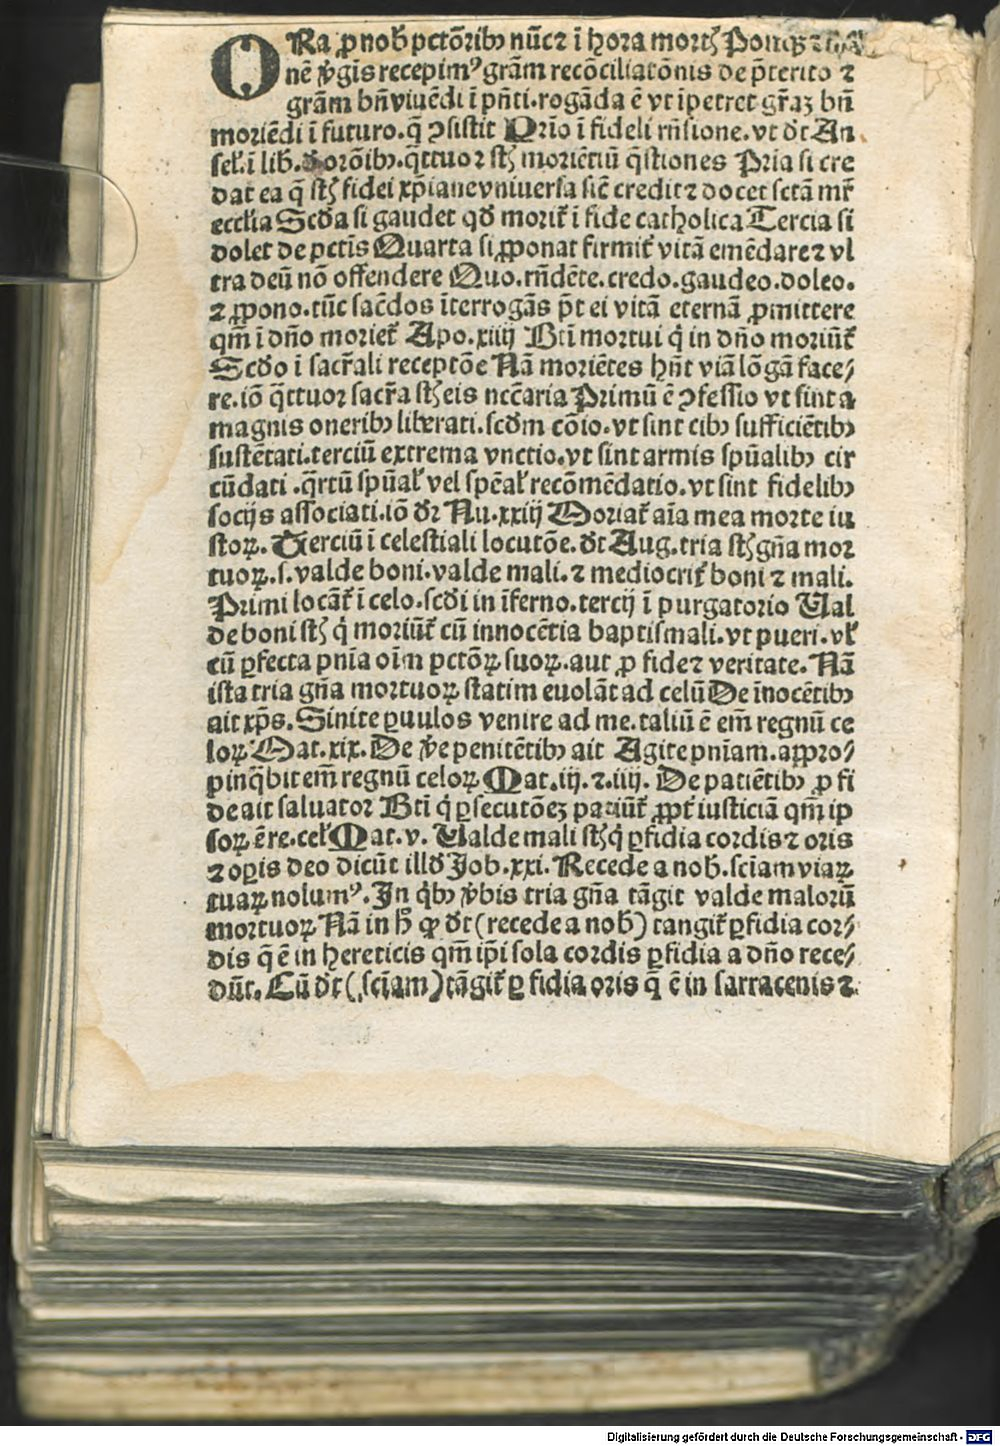 ORa ꝓ nob̄ pctōribꝫ nūc ⁊ ī hora mortꝭ
nē ꝟgīs recepimꝰ grām recōciliatōnis de p̄terito ⁊
grām bn̄ viuēdi ī pn̄ti. rogāda ē vt īpetret gr̄aꝫ bn̄
moriēdi ī futuro. q̄ ꝯsistit Prīo ī fideli rn̄sione. vt dr̄ An
sel̄. ī lib̄. d̄ orōibꝫ. q̄ttuor st̄ moriētiū q̄stiones Pria si cre
dat ea q̄ st̄ fidei xp̄iane vniuersa sic̄ credit ⁊ docet sctā mr̄
eccl̄ia Scd̄a si gaudet qd̄ morit̄ ī fide catholica Tercia si
dolet de pctīs Quarta si ꝓponat firmit̄ vitā emēdare ⁊ vl
tra deū nō offendere Quo. rn̄dēte. credo. gaudeo. doleo.
⁊ ꝓpono. tūc sac̄dos īterrogās p̄t ei vitā eternā ꝓmittere
qm̄ ī dn̄o moriet̄ Apo. xiiij Btī mortui q̄ in dn̄o moriūt̄
Scd̄o ī sacr̄ali receptōe Nā moriētes hn̄t viā lōgā face/
re. iō q̄ttuor sacr̄a st̄ eis nccāria Primū ē ꝯfessio vt sint a
magnis oneribꝫ liberati. scd̄m cōio. vt sint cibꝫ sufficiētibꝫ
sustētati. terciū extrema vnctio. vt sint armis spūalibꝫ cir
cūdati. q̄rtū spūal̄ vel spēal̄ recōmēdatio. vt sint fidelibꝫ
socijs associati. iō dr̄ Nu. xxiij Moriat̄ aīa mea morte iu
stoꝝ. Terciū ī celestiali locutōe. dt̄ Aug. tria st̄ gn̄a mor
tuoꝝ. s. valde boni. valde mali. ⁊ mediocrit̄ boni ⁊ mali.
Primi locāt̄ ī celo. scd̄i in īferno. tercij ī purgatorio Ual
de boni st̄ q̄ moriūt̄ cū innocētia baptismali. vt pueri. vl̄
cū ꝑfecta pnīa oīm pctōꝝ suoꝝ. aut ꝓ fide ⁊ veritate. Nā
ista tria gn̄a mortuoꝝ statim euolāt ad celū De īnocētibꝫ
ait xp̄s. Sinite ꝑuulos venire ad me. taliū ē em̄ regnū ce
loꝝ Mat. xix. De ꝟe penitētibꝫ ait Agite pnīam. apꝓ/
pinq̄bit em̄ regnū celoꝝ Mat. iij. ⁊. iiij. De patiētibꝫ ꝓ fi
de ait saluator Btī q̄ ꝑsecutōeꝫ patiūt̄ ꝓpt̄ iusticiā qm̄ ip
soꝝ ē re. cel̄ Mat. v. Ualde mali st̄ q̄ ꝑfidia cordis ⁊ oris
⁊ oꝑis deo dicūt illd̄ Job. xxi. Recede a nob̄. sciam viaꝝ
tuaꝝ nolumꝰ. In q̄bꝫ ꝟbis tria gn̄a tāgit valde maloꝝ
mortuoꝝ Nā in h̄ ꝙ dt̄ (recede a nob̄) tangit̄ ꝑfidia cor/
dis q̄ ē in hereticis qm̄ ip̄i sola cordis ꝑfidia a dn̄o rece/
dūt. Cū dt̄ (sciam) tāgit̄ ꝑfidia oris q̄ ē in sarracenis ⁊
Digitalisierung gefördert durch die Deutsche Forschungsgemeinschaft - DFG